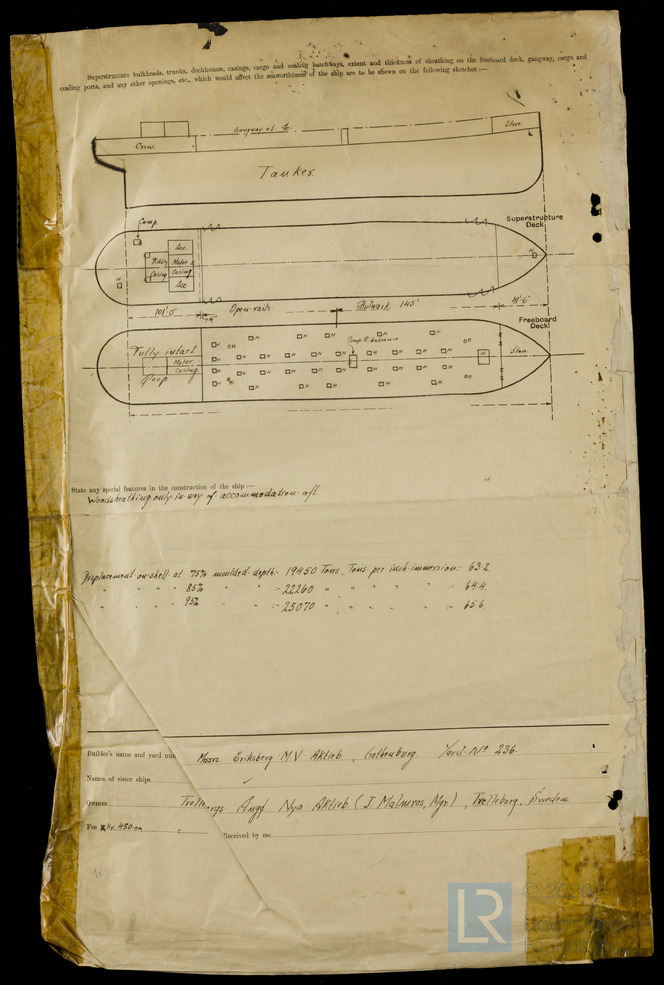 Superstructure bulkheads, trunks, deckhouses, casings, cargo and coaling hatchways, extent and thickness of sheathing on the freeboard deck, gangway, cargo and
coaling ports, and any other openings, etc., which would affect the seaworthiness of the ship are to be shewn on the following sketches :—
Gangway at ℄
Crew
Store
Tanker
Comp
Superstructure
Deck
Acc
Fidly
Motor
Casing
Casing
Acc
H
H
101'0"
Open rails
Bulwark 145'
Freeboard
Deck
Fully intact
Poop
Motor
Casing
Pump R. entrance
Store
State any special features in the construction of the ship :—
Woodsheathing only in way of accommodation aft
Displacement on shell at 75% moulded depth:- 19450 Tons, Tons per inch immersion:- 63.2
" " " 85% " " :- 22260 " " " " :- 64.4
" " " 95% " " :- 25070 " " " " :- 65.6
Builder's name and yard num Messrs. Eriksberg M V Aktieb, Gothenburg Yard. No 236.
Names of sister ships
Owners Trelleborgs Angf Nya Aktieb (J Malmros, Mgr), Trelleborg, Sweden
Fee Kr. 450.00 Received by me
LR